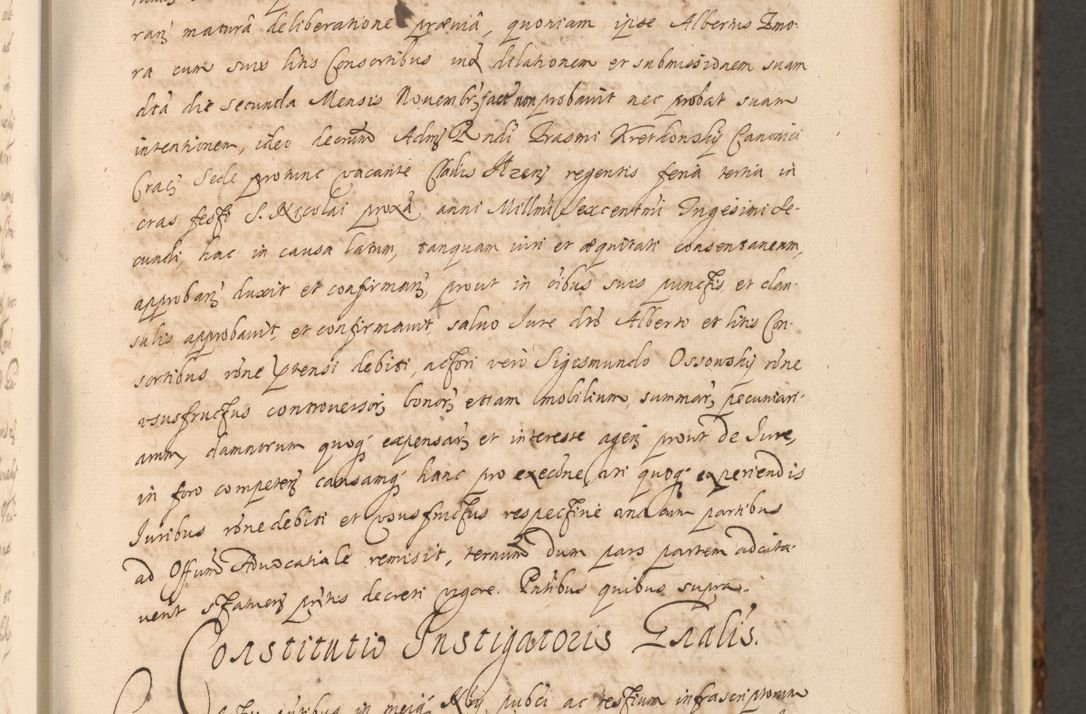 ranꝫ matura deliberatione prævia, quoniam ipse Albertus Zmo-
ra cum suis litis Consortibus ind dilationem et submissionem suam
dta die secunda Mensis Novembrꝫ fact non probavit nec probat suam
intentionem, ideo decrum Admꝫ Rndi Erasmi Kretkowskÿ Canonici
Cracꝫ Sede protunc vacante regentis feria tertia in
cras festi S. Nicolai proxa anni Millmi Sexcentmi Trigesimi se-
cundi, hac in causa latum, tanquam iuri et æquitati consentaneum,
approbarꝫ duxit et confirmarꝫ, prout in oibus suis punctis et clau-
sulis approbavit, et confirmavit salvo Iure dto Alberto et litis Con-
sortibus rone ptensi debiti, actori vero Sigesmundo Ossowskÿ rone
ususfructus controversorꝫ bonorꝫ etiam mobilium, summarꝫ pecuniari-
arum, damnorum quoqꝫ expensarꝫ et interesse agenꝫ prout de Iure,
in foro competenꝫ causamqꝫ hanc pro execone quoqꝫ experiendis
Iuribus rone debiti et ususfructus respective partibus
ad Offum Advocatiale remisit, terminum dum pars partem adcita-
verit statuenꝫ pntis decreti vigore. Pntibus quibus supra.
Constitutio Instigatoris Gnalis.
in mei Rÿ, publci ac testium infrascriptorum